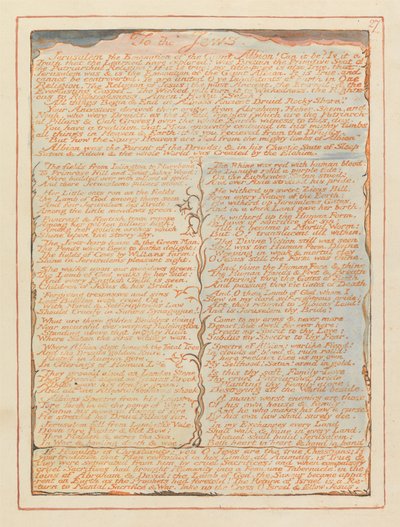 27.
To the Jews.
Jerusalem the Emanation of the Giant Albion! Can it be? Is it a
Truth that the Learned have explored? Was Britain the Primitive Seat of
the Patriarchal Religion? If it is true: my title-page is also True, that
Jerusalem was & is the Emanation of the Giant Albion. It is True, and
cannot be controverted. Ye are united O ye Inhabitants of Earth in One
Religion. The Religion of Jesus: the most Ancient, the Eternal: & the
Everlasting Gospel. The Wicked will turn it to Wickedness, the Righte-
ous to Righteousness. Amen! Huzza! Selah!
All things Begin & End in Albions Ancient Druid Rocky Shore.
Your Ancestors derived their origin from Abraham, Heber, Shem, and
Noah, who were Druids: as the Druid Temples (which are the Patriarchal
Pillars & Oak Groves) over the whole Earth witness to this day.
You have a tradition, that Man anciently containd in his mighty limbs
all things in Heaven & Earth: this you recieved from the Druids.
But now the Starry Heavens are fled from the mighty limbs of Albion
Albion was the Parent of the Druids; & in his Chaotic State of Sleep
Satan & Adam & the whole World was Created by the Elohim.
The fields from Islington to Marybone,
To Primrose Hill and Saint Johns Wood:
Were builded over with pillars of gold,
And there Jerusalems pillars stood.
Her Little-ones ran on the fields
The Lamb of God among them seen
And fair Jerusalem his Bride:
Among the little meadows green.
Pancrass & Kentish-town repose
Among her golden pillars high:
Among her golden arches which
Shine upon the starry sky.
The Jews-harp-house & the Green Man;
The Ponds where Boys to bathe delight:
The fields of Cows by Willans farm:
Shine in Jerusalems pleasant sight.
She walks upon our meadows green:
The Lamb of God walks by her side:
And every English Child is seen,
Children of Jesus & his Bride,
Forgiving trespasses and sins
Lest Babylon with cruel Og,
With Moral & Self-righteous Law
Should Crucify in Satans Synagogue!
What are those golden Builders doing
Near mournful ever-weeping Paddington
Standing above that mighty Ruin
Where Satan the first victory won.
Where Albion slept beneath the Fatal Tree
And the Druids golden Knife,
Rioted in human gore,
In Offerings of Human Life
They groan'd aloud on London Stone
They groan'd aloud on Tyburns Brook
Albion gave his deadly groan,
And all the Atlantic Mountains shook
Albions Spectre from his Loins
Tore forth in all the pomp of War!
Satan his name: in flames of fire
He stretch'd his Druid Pillars far.
Jerusalem fell from Lambeth's Vale,
Down thro Poplar & Old Bow;
Thro Malden & acros the Sea,
In War & howling death & woe.
The Rhine was red with human blood:
The Danube rolld a purple tide:
On the Euphrates Satan stood:
And over Asia stretch'd his pride.
He witherd up sweet Zions Hill,
From every Nation of the Earth:
He witherd up Jerusalems Gates,
And in a dark Land gave her birth.
He witherd up the Human Form,
By laws of sacrifice for sin:
Till it became a Mortal Worm:
But O! translucent all within.
The Divine Vision still was seen
Still was the Human Form, Divine
Weeping in weak & mortal clay
O Jesus still the Form was thine.
And thine the Human Face & thine
The Human Hands & Feet & Breath
Entering thro' the Gates of Birth
And passing thro' the Gates of Death
And O thou Lamb of God, whom I
Slew in my dark self-righteous pride:
Art thou return'd to Albions Land!
And is Jerusalem thy Bride?
Come to my arms & never more
Depart; but dwell for ever here:
Create my Spirit to thy Love:
Subdue my Spectre to thy Fear.
Spectre of Albion! warlike Fiend!
In clouds of blood & ruin roll'd:
I here reclaim thee as my own
My Selfhood! Satan! armd in gold.
Is this thy soft Family-Love
Thy cruel Patriarchal pride
Planting thy Family alone,
Destroying all the World beside.
A mans worst enemies are those
Of his own house & family;
And he who makes his law a curse,
By his own law shall surely die.
In my Exchanges every Land
Shall walk, & mine in every Land,
Mutual shall build Jerusalem:
Both heart in heart & hand in hand.
If Humility is Christianity; you O Jews are the true Christians; If
your tradition that Man contained in his Limbs, all Animals, is True & they
were separated from him by cruel Sacrifices: and when compulsory
cruel Sacrifices had brought Humanity into a Feminine Tabernacle, in the
loins of Abraham & David: the Lamb of God, the Saviour became appar-
ent on Earth as the Prophets had foretold? The Return of Israel is a Re-
turn to Mental Sacrifice & War. Take up the Cross O Israel & follow Jesus.